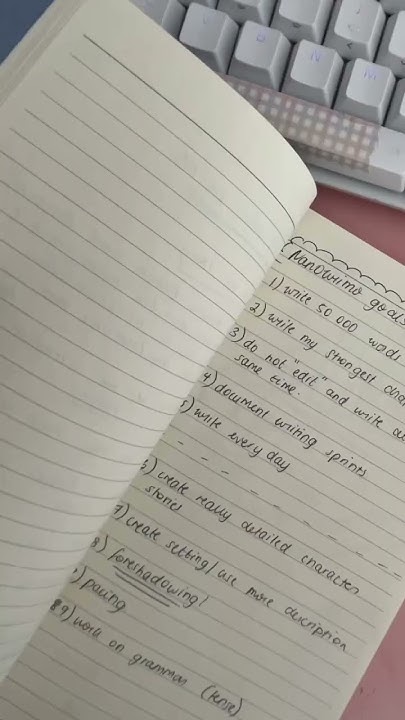 Nanowrimo goals
1) write 50 000 words
2) write my strongest
3) do not "edit" and write
same time.
4) document writing sprints
5) write every day
6) create really detailed character
stories
7) create setting/use more description
8) foreshadowing!
pacing
89) work on grammar (tense)